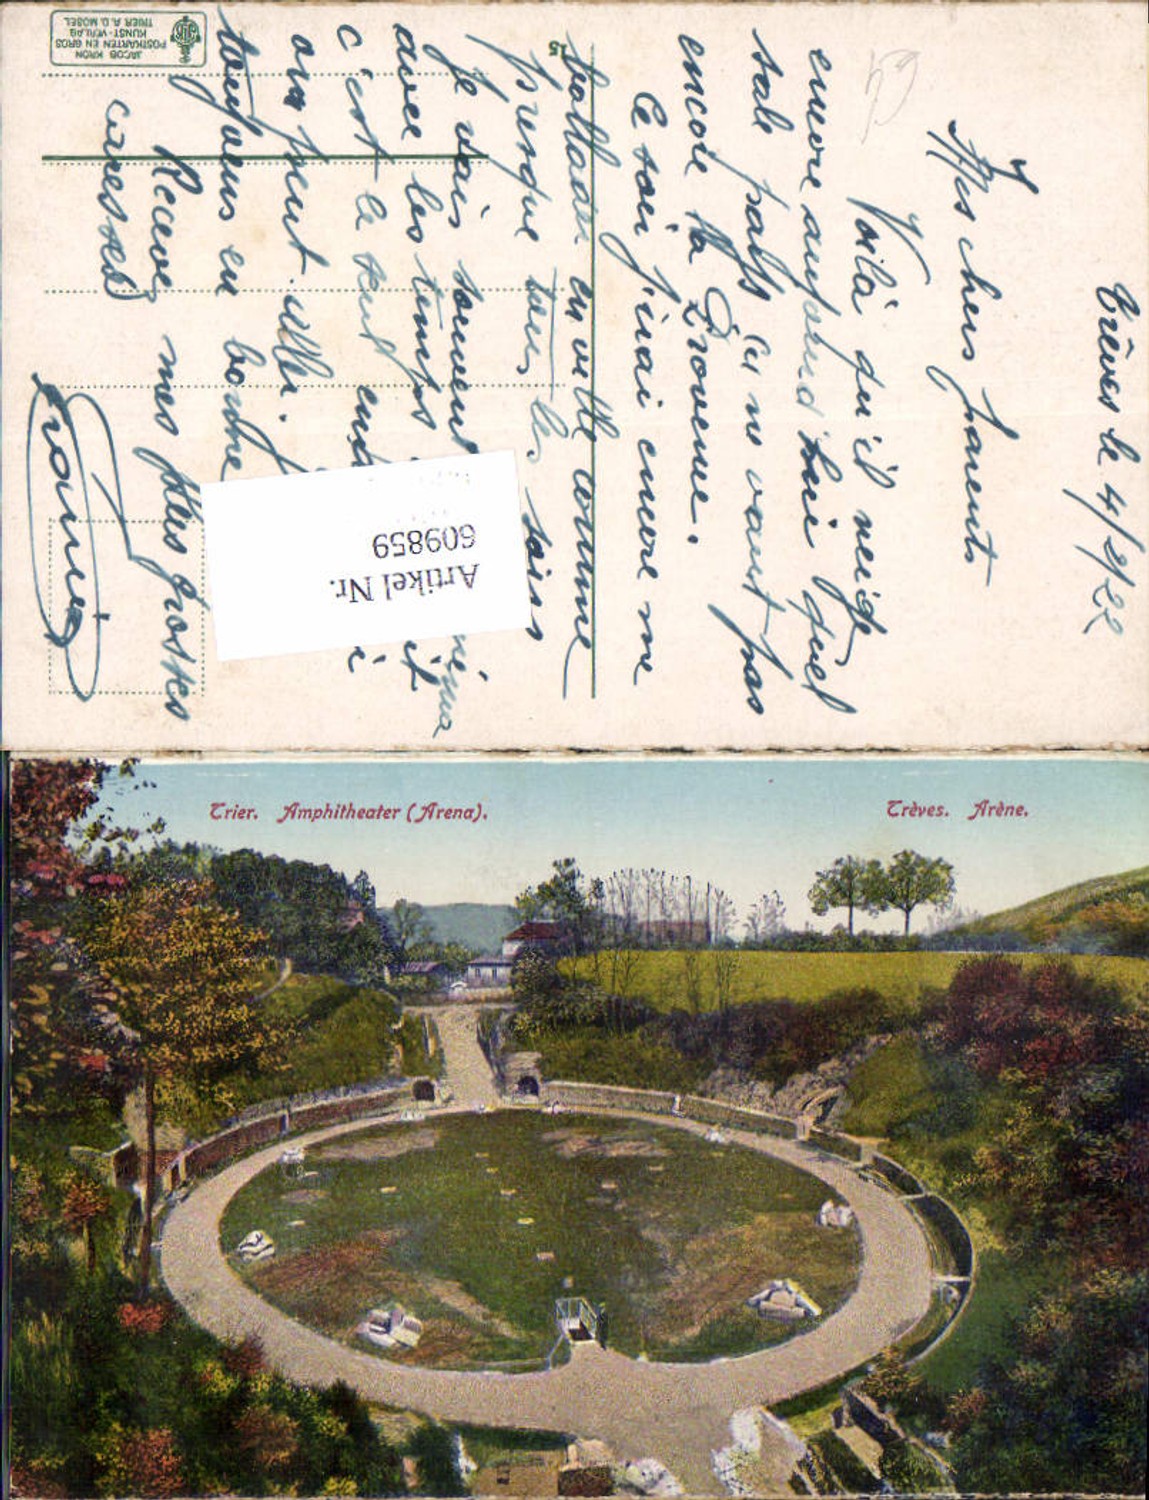 Trèves le 4/2/22
Mes chers parents
Voilà qu'il neige
encore aujourd'hui quel
sale pays ça ne vaut pas
encore la Provence.
Ce soir j'irai encore me
ballader en ville comme
presque tous les soirs
Je vais souvent
avec les temps
c'est le seul
on peut aller.
toujours en
Recevez mes plus grosses
caresses
JACOB KRON
POSTKARTEN EN GROS
KUNST-VERLAG
TRIER A. D. MOSEL
15
Artikel Nr.
609859
Trier. Amphitheater (Arena).
Trèves. Arène.